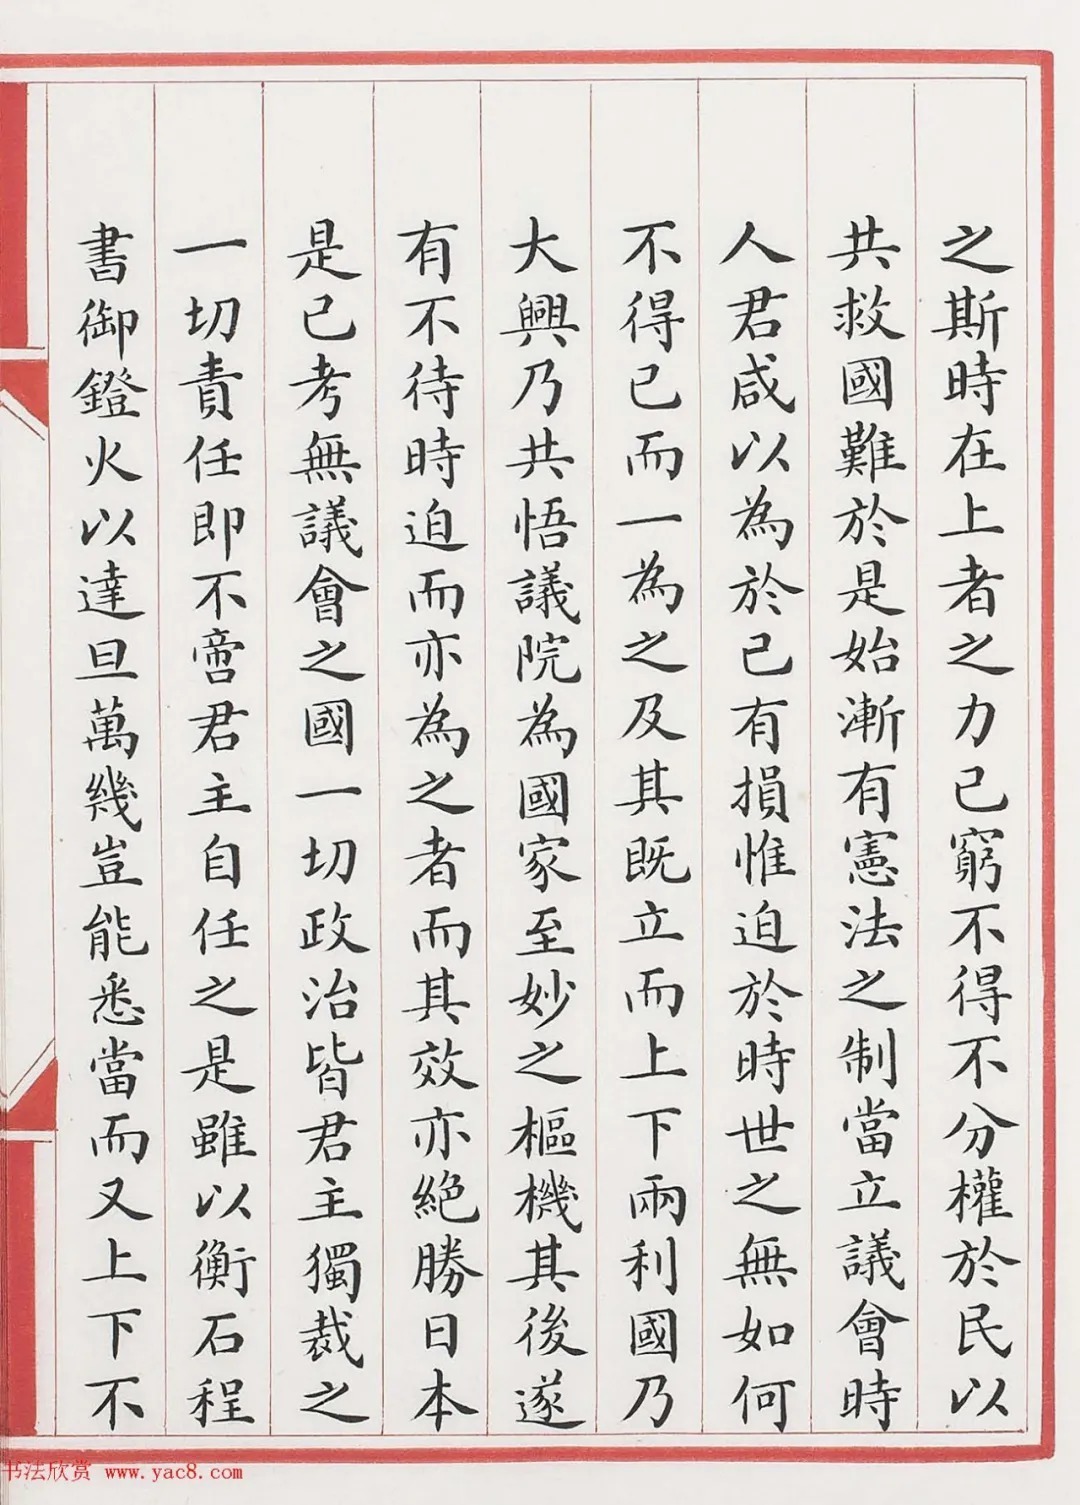 之斯時在上者之力已窮不得不分權於民以
共救國難於是始漸有憲法之制當立議會時
人君咸以為於已有損惟迫於時世之無如何
不得已而一為之及其既立而上下兩利國乃
大興乃共悟議院為國家至妙之樞機其後遂
有不待時迫而亦為之者而其效亦絕勝日本
是已考無議會之國一切政治皆君主獨裁之
一切責任即不啻君主自任之是雖以衡石程
書御鐙火以達旦萬幾豈能悉當而又上下不
书法欣赏 www.yac8.com